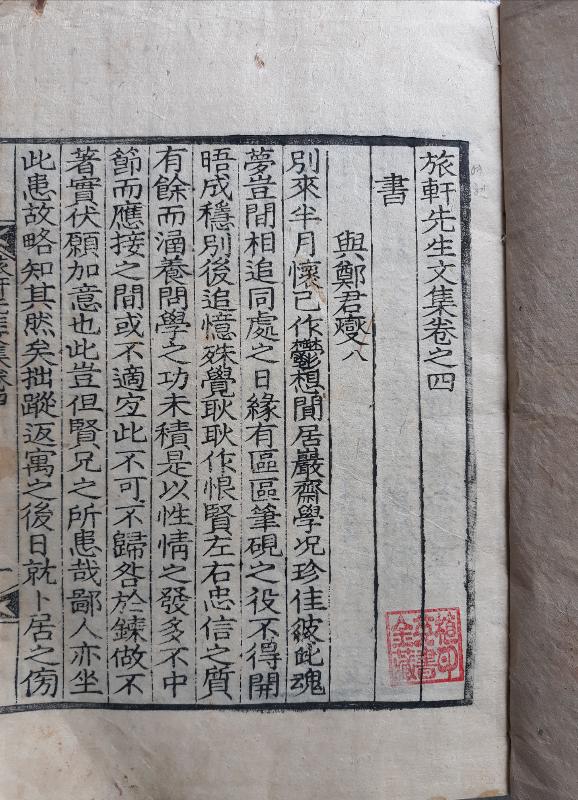 旅軒先生文集卷之四
書
與鄭君燮八
別來半月懷已作鬱想閒居巖齋學况珍佳彼此魂
夢豈間相追同處之日緣有區區筆硯之役不得開
晤成穩別後追憶殊覺耿耿作恨賢左右忠信之質
有餘而涵養問學之功未積是以性情之發多不中
節而應接之間或不適宜此不可不歸咎於鍊做不
著實伏願加意也此豈但賢兄之所患哉鄙人亦坐
此患故略知其然矣拙蹤返寓之後日就卜居之傍